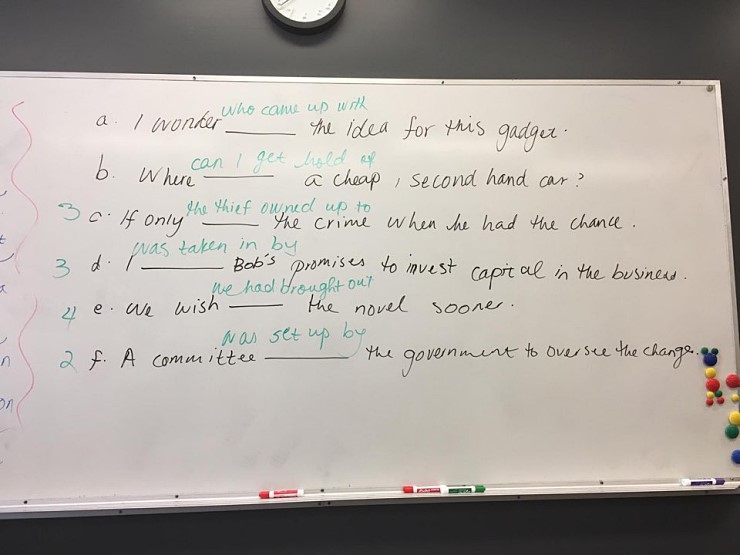 who came up with
a. I wonder ______ the idea for this gadget.
can I get hold of
b. Where ______ a cheap, second hand car?
the thief owned up to
3 c. If only ______ the crime when he had the chance.
was taken in by
3 d. I ______ Bob's promises to invest capital in the business.
we had brought out
4 e. We wish ______ the novel sooner.
was set up by
2 f. A committee ______ the government to oversee the change.
n
on